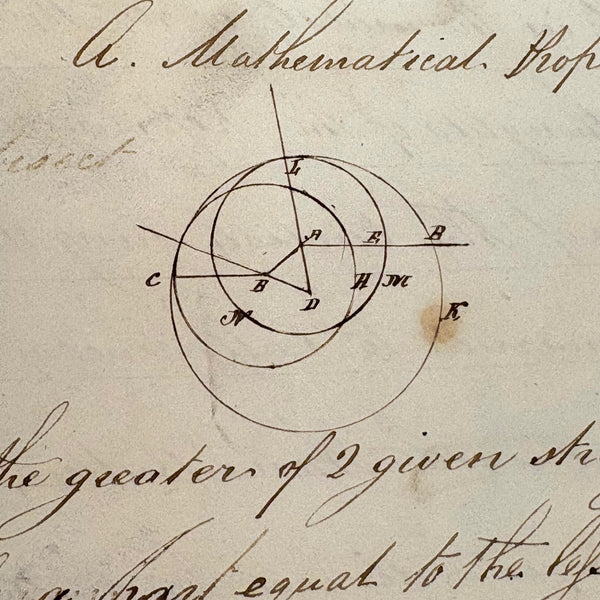 A. Mathematical prop
bisect
L
A E B
C B H M
D
N K
the greater of 2 given str
a part equal to the less